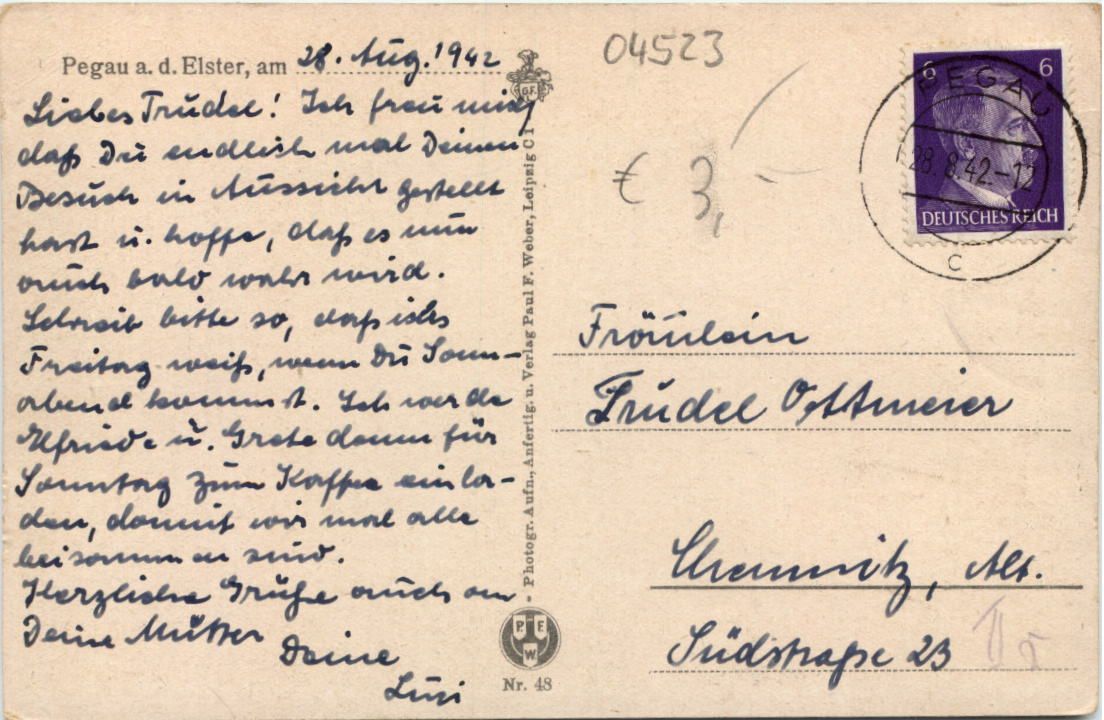 Pegau a. d. Elster, am 28. Aug. 1942
Liebes Trudel! Ich freu mich
daß Du endlich mal Deinen
Besuch in Aussicht gestellt
hast u. hoffe, daß es nun
auch bald wahr wird.
Schreib bitte so, daß ichs
Freitag weiß, wenn Du Sonn-
abend kommst. Ich werde
Elfriede u. Grete dann für
Sonntag zum Kaffee einla-
den, damit wir mal alle
beisammen sind.
Herzliche Grüße auch an
Deine Mutter
Deine
Lusi
G.F.
Photogr. Aufn., Anfertig. u. Verlag Paul F. Weber, Leipzig C 1
P. F. W.
Nr. 48
04523
€ 3,-
6 6
DEUTSCHES REICH
PEGAU
28.8.42.-12
c
Fräulein
Trudel Ottmeier
Chemnitz, Alt.
Südstraße 23